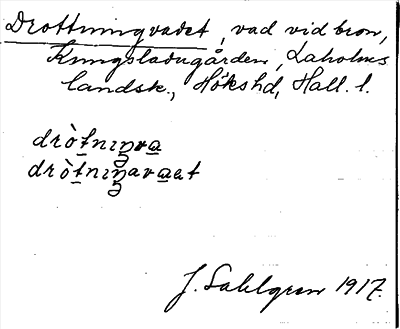 Drottningvadet, vad vid bron,
Kungsladugården, Laholms
landsk., Hökshd, Hall. l.
dròtniŋva
dròtniŋavaet
J. Sahlgren 1917.